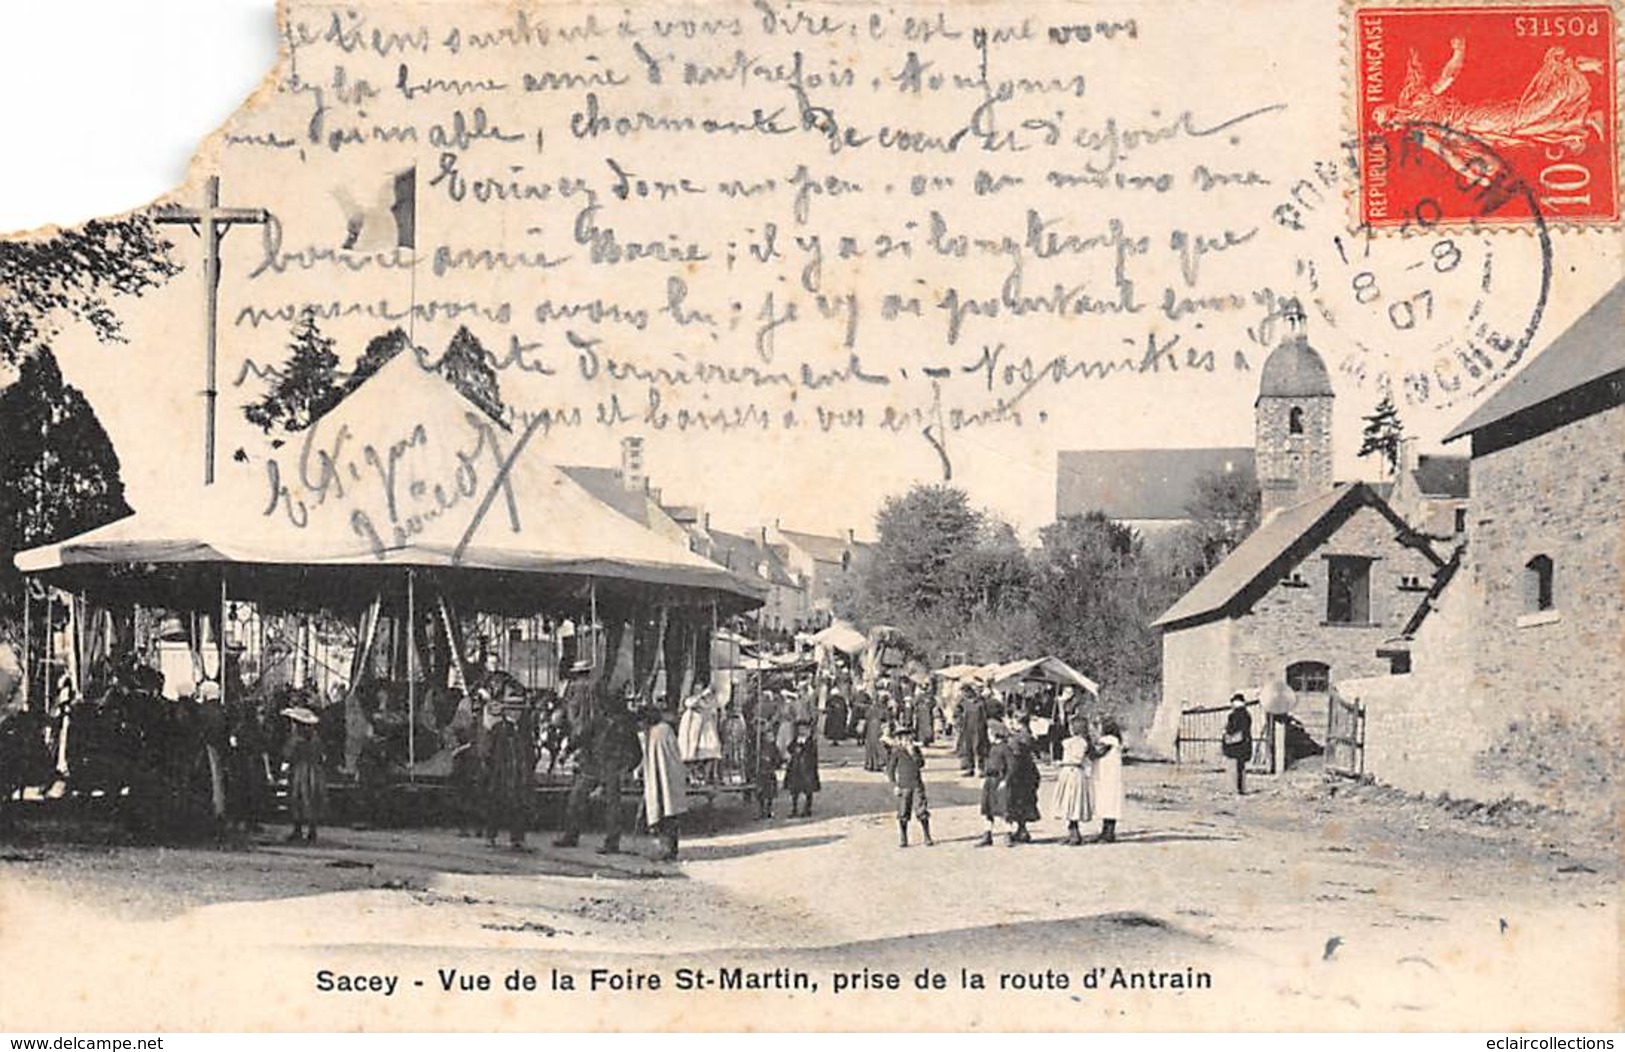 je tiens surtout à vous dire, c'est que vous
la bonne amie d'autrefois. Toujours
aimable, charmante de cœur et d'esprit.
Ecrivez donc un peu. ou au moins ma
bonne amie Marie ; il y a si longtemps que
nous ne vous avons lu ; je y ai pourtant envoyé
carte dernièrement. - Nos amitiés à
vous et baisers à vos enfants.
E. Digas
REPUBLIQUE FRANÇAISE
POSTES
10c
PONTORSON
17 20
8 -8
07
MANCHE
Sacey - Vue de la Foire St-Martin, prise de la route d'Antrain
https://www.delcampe.net
eclaircollections